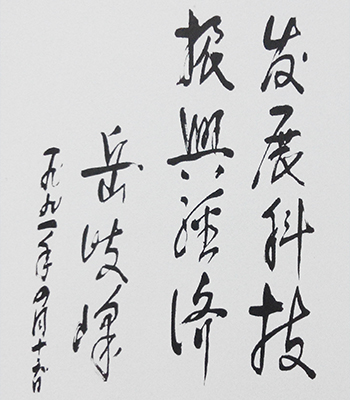 发展科技
振兴经济
岳岐峰
一九九一年四月十六日